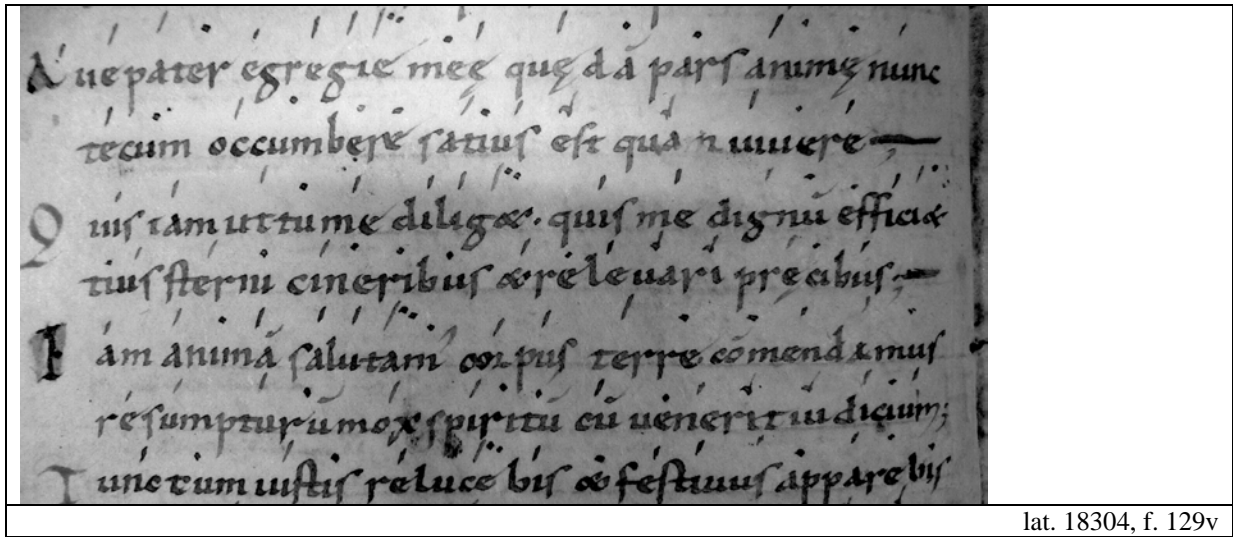 Aue pater egregie meę quędā pars animę nunc
tecum occumbere satius est quā n uiuere
Quis iam ut tu me diligæ· quis me dignū efficiæ
tius sterni cineribus & releuari pręcibus;
Iam animā salutam' corpus terre cōmendamus
resumpturū mox spiritū cū uenerit iudicium;
Tunc cum iustis relucebis & festiuus apparebis
lat. 18304, f. 129v